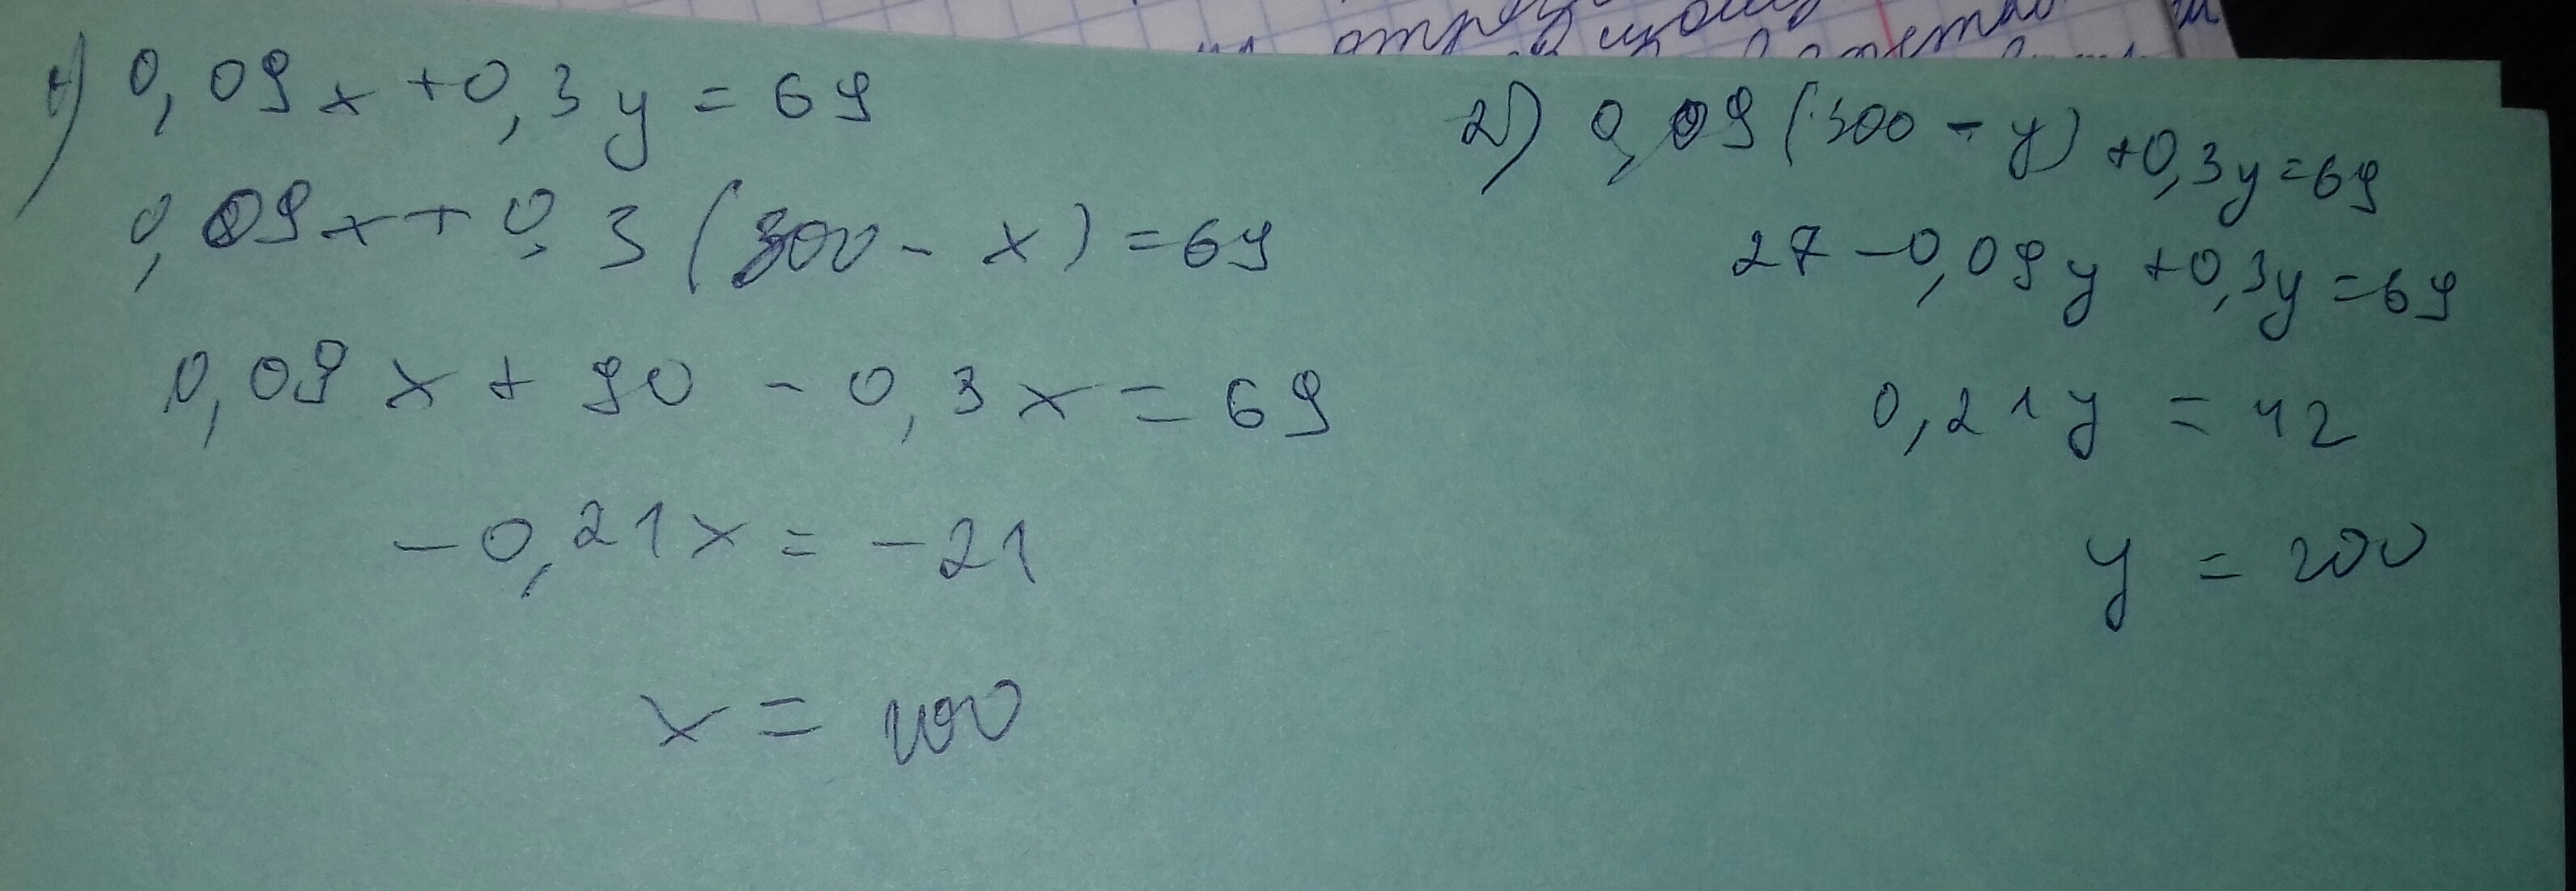 1) 0,09x + 0,3y = 69
0,09x + 0,3(300 - x) = 69
0,09x + 90 - 0,3x = 69
-0,21x = -21
x = 100
2) 0,09(300 - y) + 0,3y = 69
27 - 0,09y + 0,3y = 69
0,21y = 42
y = 200